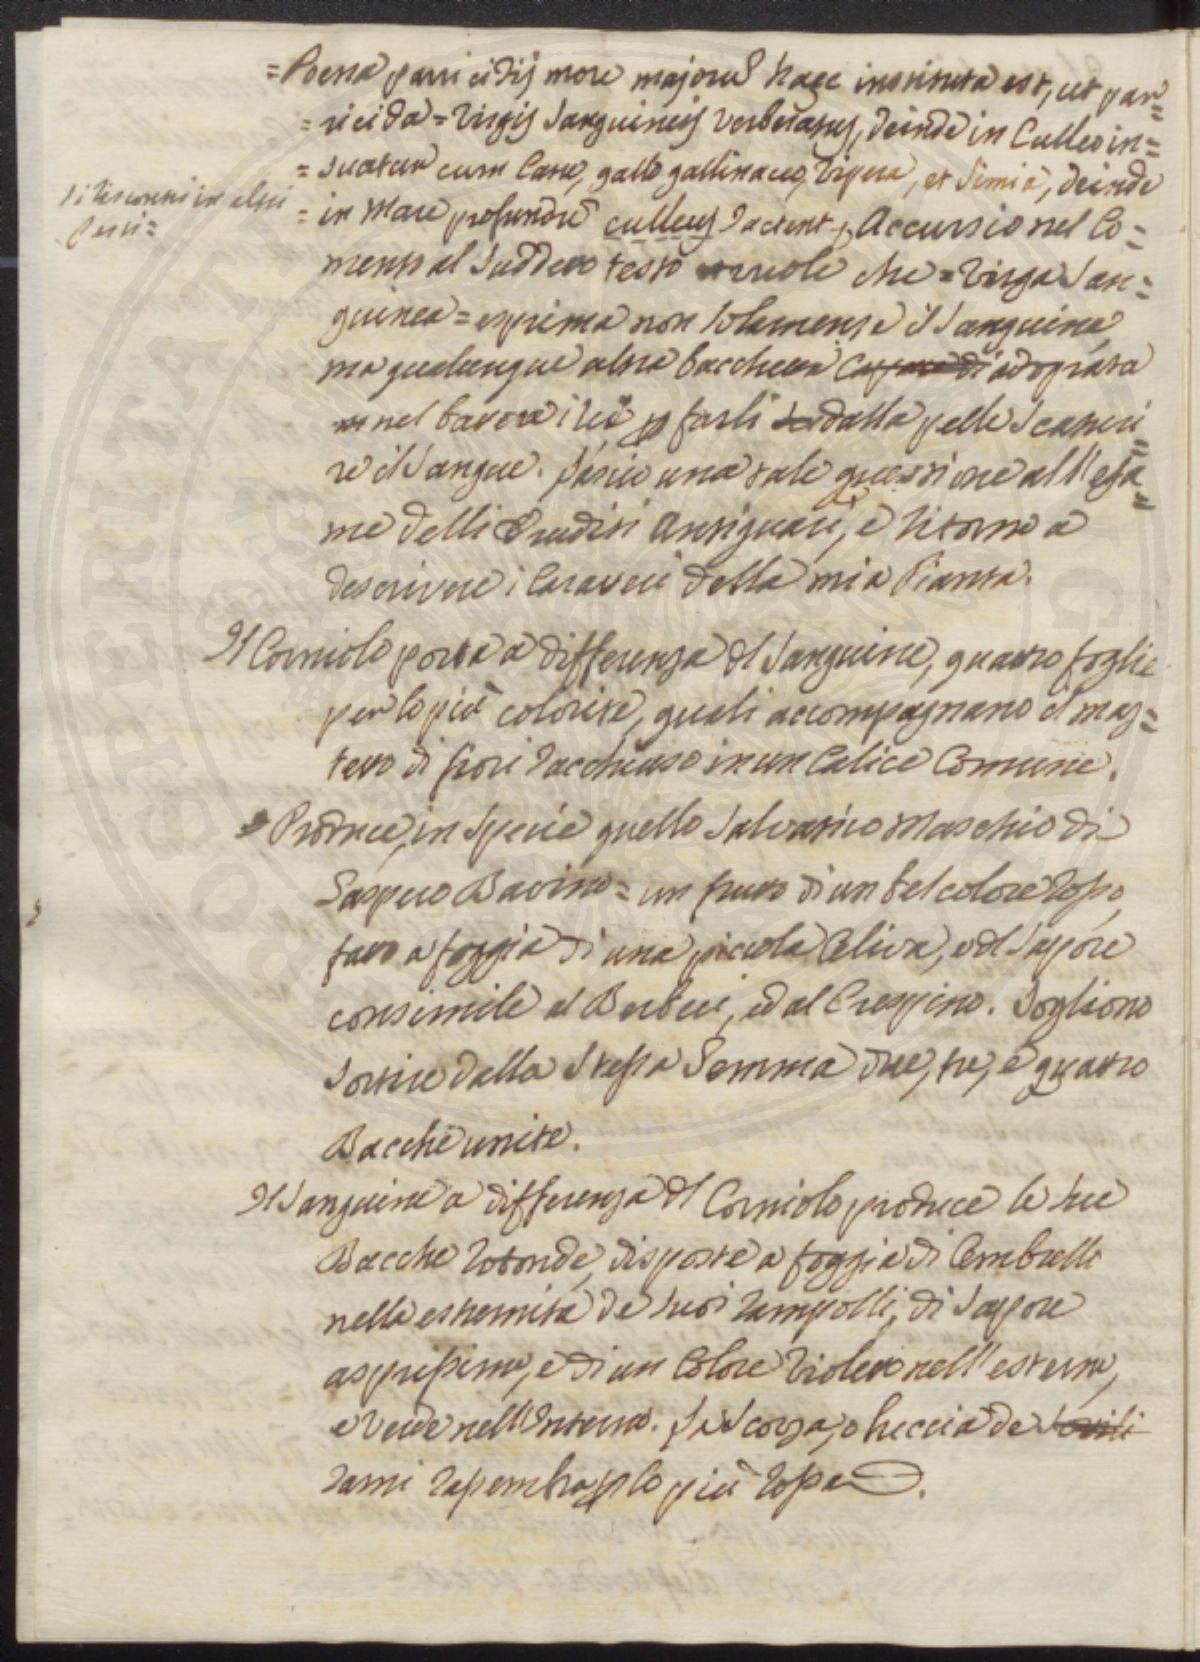 = Poena parricidij more majorũ haec instituta est, ut par=
= ricida = Virgis Sanguineis verberatus, deinde in Culleo in=
= suatur cum Cane, gallo gallinaceo, Vipera, et Simia, deinde
= in Mare profundũ culleus Jactent.r Accursio nel Co=
mento al Suddetto testo vuole che = Virga San=
guinea = esprima non solamente il Sanguine,
ma qualunque altra bacchetta adoprata
nel battere i rei p farli dalla pelle scaturi=
re il Sangue. Lascio una tale questione all'esa=
me delli Eruditi Antiquarj, e ritorno a
descrivere i Caratteri della mia Pianta.
Il Corniolo porta a differenza dl Sanguine, quattro foglie
per lo più colorite, quali accompagnano il maz=
zetto di fiori racchiuso in un Calice Comune.
Produce, in specie quello Salvatico Maschio di
Gaspero Bavino = un frutto di un bel colore rosso,
fatto a foggia di una piccola Oliva, e dl sapore
consimile al Berberi, ed al Crespino. Sogliono
sortire dalla stessa Gemma due, tre, e quattro
Bacche unite.
Il Sanguine a differenza dl Corniolo produce le sue
Bacche rotonde, disposte a foggia di Ombrelle
nelle estremità de suoi rampolli, di sapore
asprissimo, e di un Colore violetto nell'esterno,
e verde nell'Interno. La Scorza, o buccia de
rami rassembra p lo più rossa.